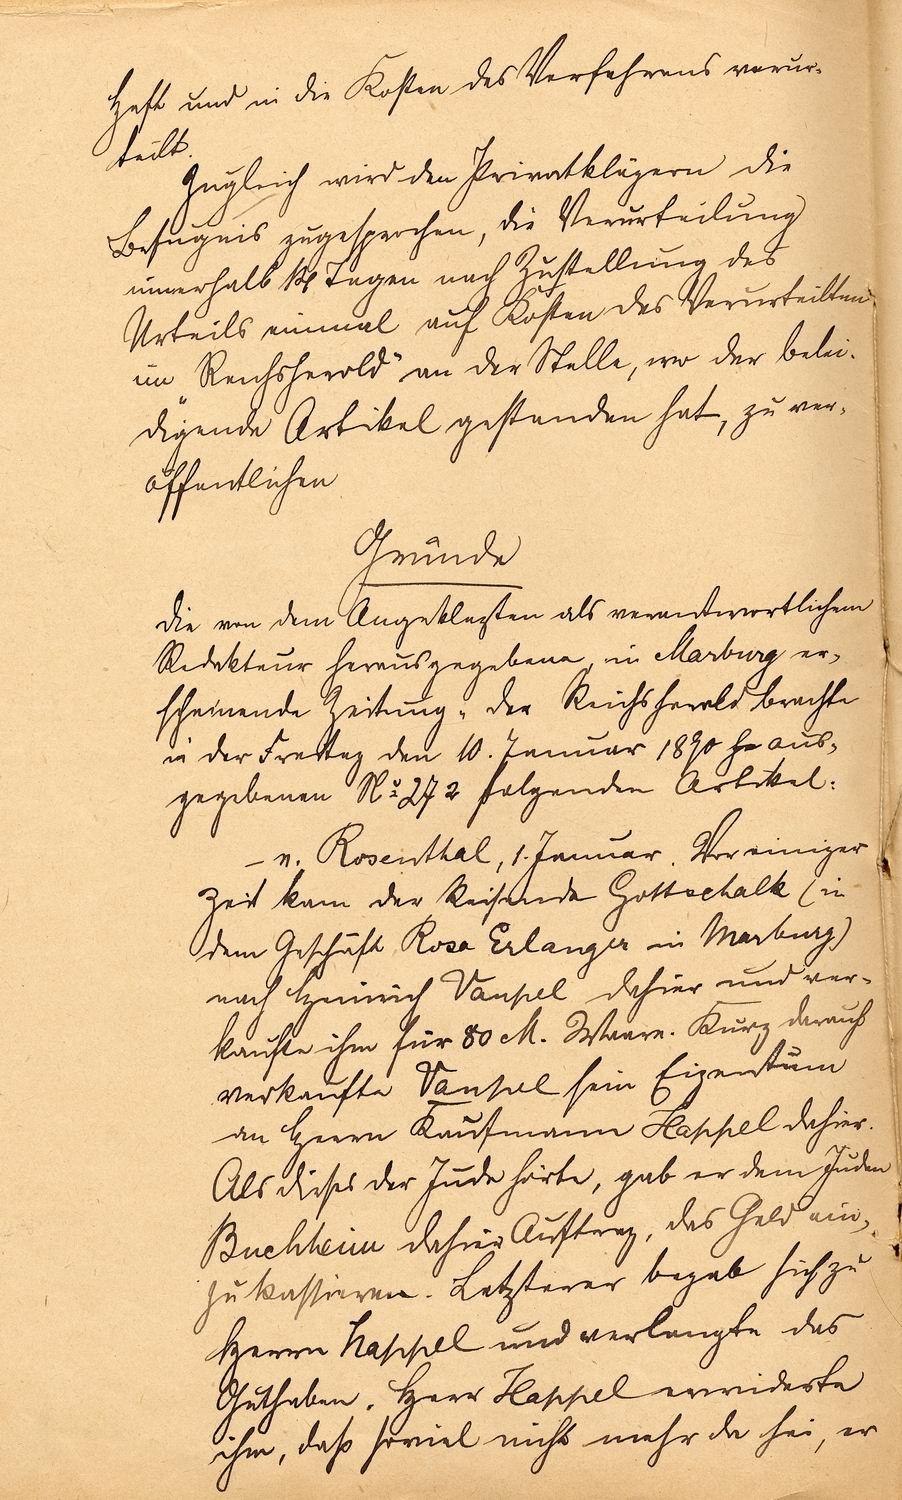 Haft und in die Kosten des Verfahrens verur-
teilt.
Zugleich wird den Privatklägern die
Befugnis zugesprochen, die Verurteilung
innerhalb 14 Tagen nach Zustellung des
Urteils einmal auf Kosten des Verurteilten
im Reichsherold" an der Stelle, wo der belei-
digende Artikel gestanden hat, zu ver-
öffentlichen
Gründe
Die von dem Angeklagten als verantwortlichem
Redakteur herausgegebene, in Marburg er-
scheinende Zeitung „ der Reichsherold brachte
in der Freitag den 10. Januar 1890 heraus-
gegebenen No 272 folgenden Artikel:
– v. Rosenthal, 1. Januar. Vor einiger
Zeit kam der Reisende Gottschalk (in
dem Geschäft Rosa Erlanger in Marburg)
nach Heinrich Vaupel dahier und ver-
kaufte ihm für 80 M. Waare. Kurz darauf
verkaufte Vaupel sein Eigentum
an Herrn Kaufmann Happel dahier.
Als dieses der Jude hörte, gab er dem Juden
Buchheim dahier Auftrag, das Geld ein-
zukassieren. Letzterer begab sich zu
Herrn Happel und verlangte das
Guthaben. Herr Happel erwiderte
ihm, daß soviel nicht mehr da sei, er